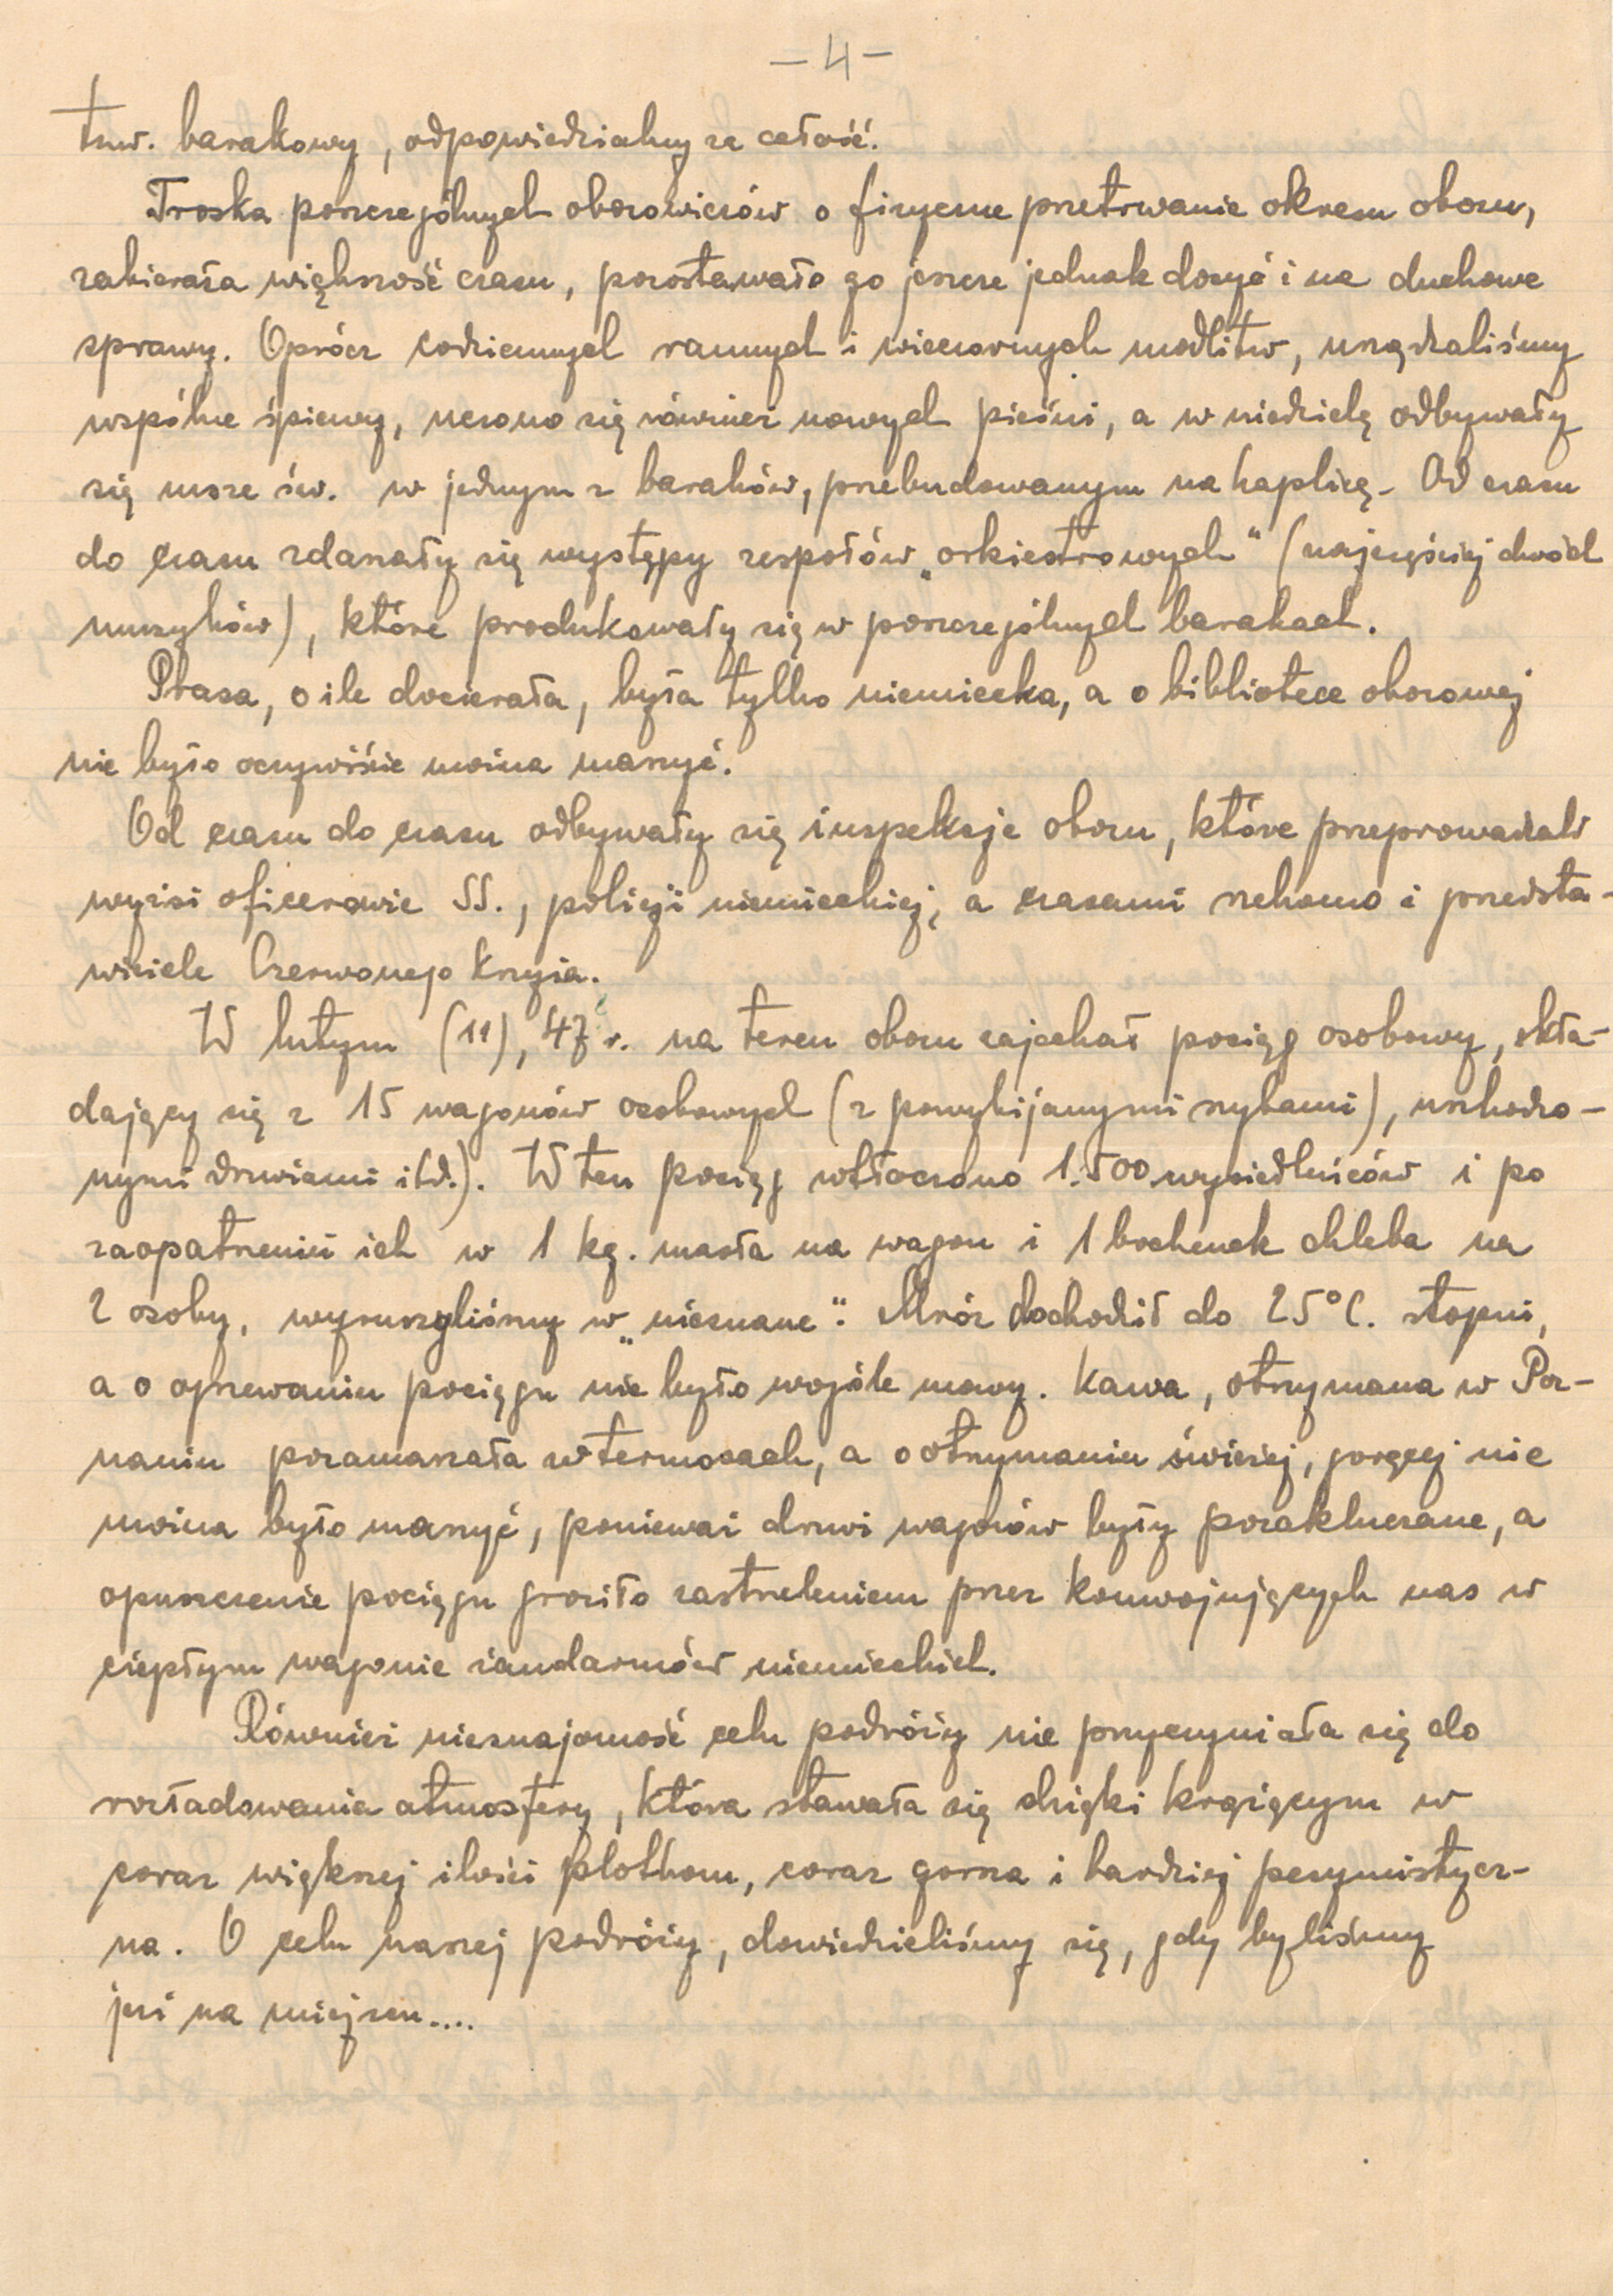 – 4 –
tzw. barakowy, odpowiedzialny za całość.
Troska poszczególnych obozowiczów o fizyczne przetrwanie okresu obozu,
zabierała większość czasu, pozostawało go jeszcze jednak dosyć i na duchowe
sprawy. Oprócz codziennych rannych i wieczornych modlitw, urządzaliśmy
wspólne śpiewy, uczono się również nowych pieśni, a w niedzielę odbywały
się msze św. w jednym z baraków, przebudowanym na kaplicę. Od czasu
do czasu zdarzały się występy zespołów „orkiestrowych" (najczęściej dwóch
muzyków), które produkowały się w poszczególnych barakach.
Prasa, o ile docierała, była tylko niemiecka, a o bibliotece obozowej
nie było oczywiście można marzyć.
Od czasu do czasu odbywały się inspekcje obozu, które przeprowadzali
wyżsi oficerowie SS., policji niemieckiej, a czasami rzekomo i przedsta-
wiciele Czerwonego Krzyża.
W lutym (11), 47 r. na teren obozu zajechał pociąg osobowy, skła-
dający się z 15 wagonów osobowych (z powybijanymi szybami), uszkodzo-
nymi drzwiami itd.). W ten pociąg wtłoczono 1.500 wysiedleńców i po
zaopatrzeniu ich w 1 kg. masła na wagon i 1 bochenek chleba na
2 osoby, wyruszyliśmy w „nieznane". Mróz dochodził do 25°C. stopni,
a o ogrzewaniu pociągu nie było wogóle mowy. Kawa, otrzymana w Poz-
naniu pozamarzała w termosach, a o otrzymaniu świeżej, gorącej nie
można było marzyć, ponieważ drzwi wagonów były pozakluczane, a
opuszczenie pociągu groziło zastrzeleniem przez konwojujących nas w
ciepłym wagonie żandarmów niemieckich.
Również nieznajomość celu podróży nie przyczyniała się do
rozładowania atmosfery, która stawała się dzięki krążącym w
coraz większej ilości plotkom, coraz gorsza i bardziej pesymistycz-
na. O celu naszej podróży, dowiedzieliśmy się, gdy byliśmy
już na miejscu....